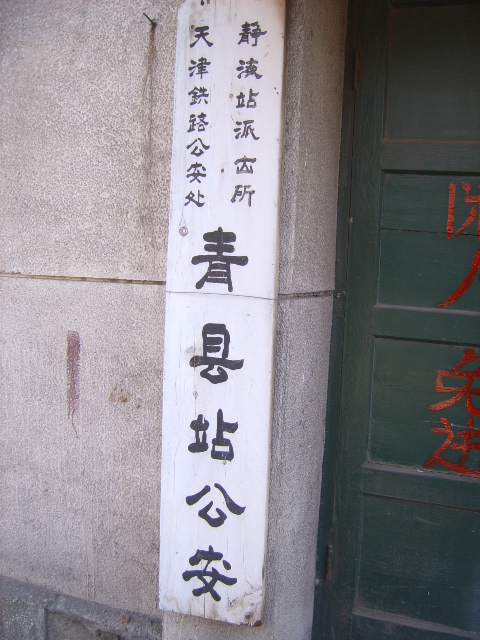 天津鉄路公安处
静海站派出所
青县站公安
免进